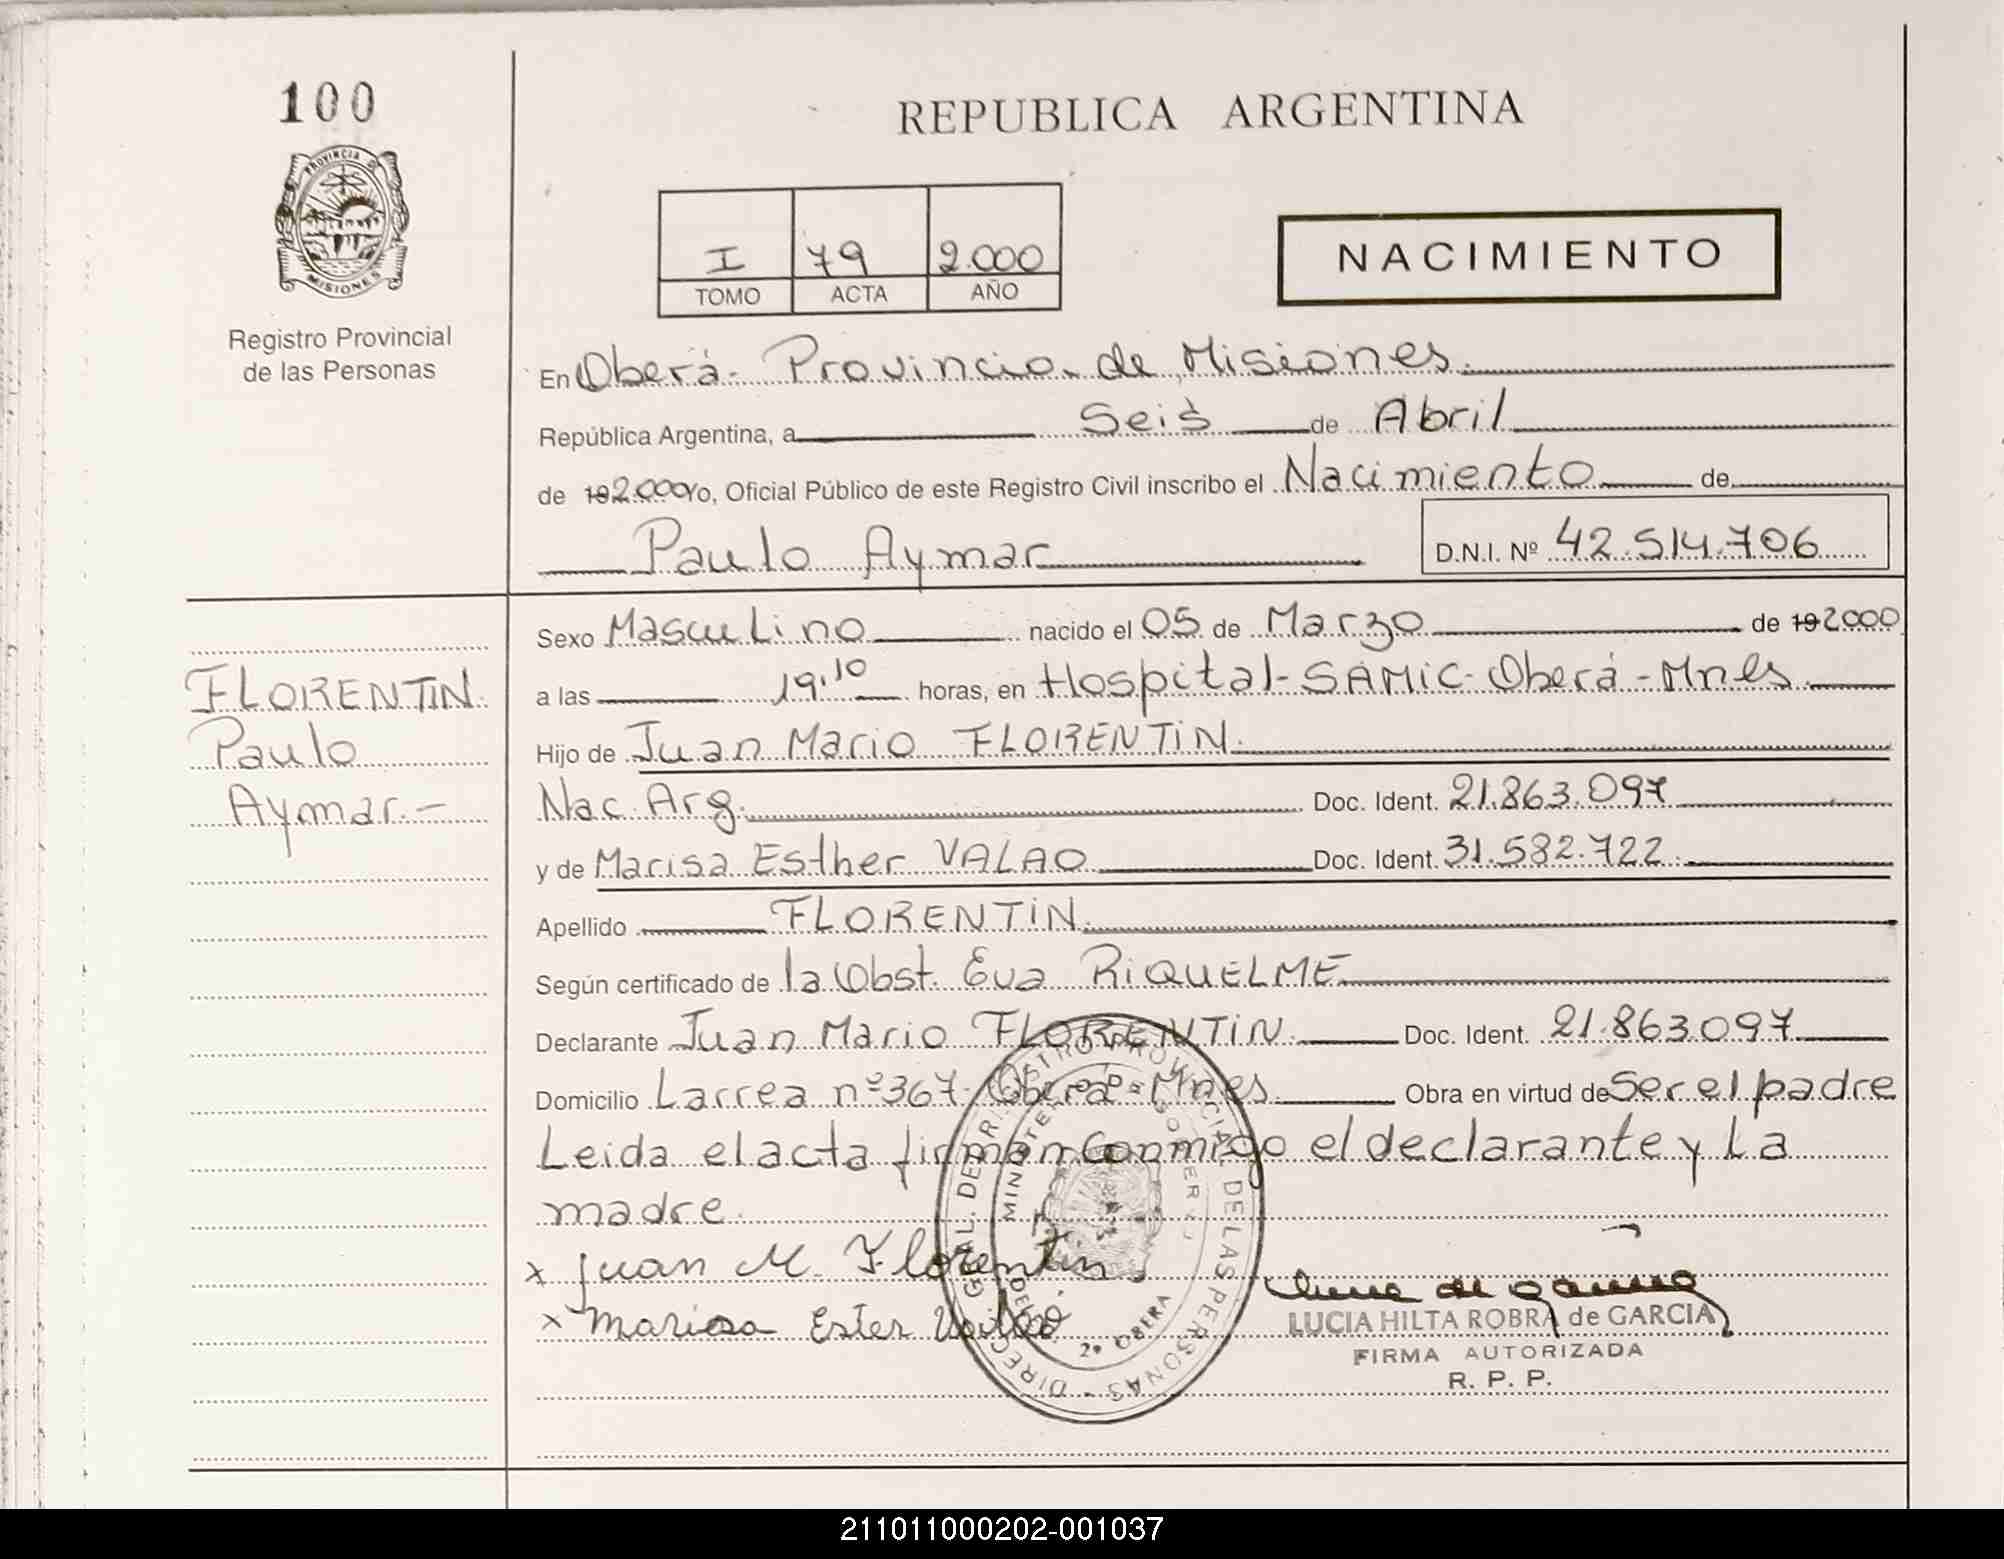 100
PROVINCIA DE
MISIONES
Registro Provincial
de las Personas
REPUBLICA ARGENTINA
I 79 2.000
TOMO ACTA AÑO
NACIMIENTO
En Oberá- Provincia de Misiones.
República Argentina, a Seis de Abril
de 192.000 Yo, Oficial Público de este Registro Civil inscribo el Nacimiento de
Paulo Aymar D.N.I. Nº 42.514.706
Sexo Masculino nacido el 05 de Marzo de 192000
a las 19.10 horas, en Hospital-SAMIC-Oberá-Mnes.
FLORENTIN
Paulo
Aymar.-
Hijo de Juan Mario FLORENTIN.
Nac. Arg. Doc. Ident. 21.863.097
y de Marisa Esther VALAO Doc. Ident. 31.582.722.
Apellido FLORENTIN.
Según certificado de la Obst. Eva RIQUELME
Declarante Juan Mario FLORENTIN. Doc. Ident. 21.863.097
Domicilio Larrea nº367-Oberá-Mnes. Obra en virtud de Ser el padre
Leida el acta firman conmigo el declarante y La
madre.
x Juan M. Florentin.
x Marisa Ester
LUCIA HILTA ROBRA de GARCIA
FIRMA AUTORIZADA
R. P. P.
DIREC. GRAL. DE REGISTRO PROVINCIAL DE LAS PERSONAS
2º OBERA
211011000202-001037